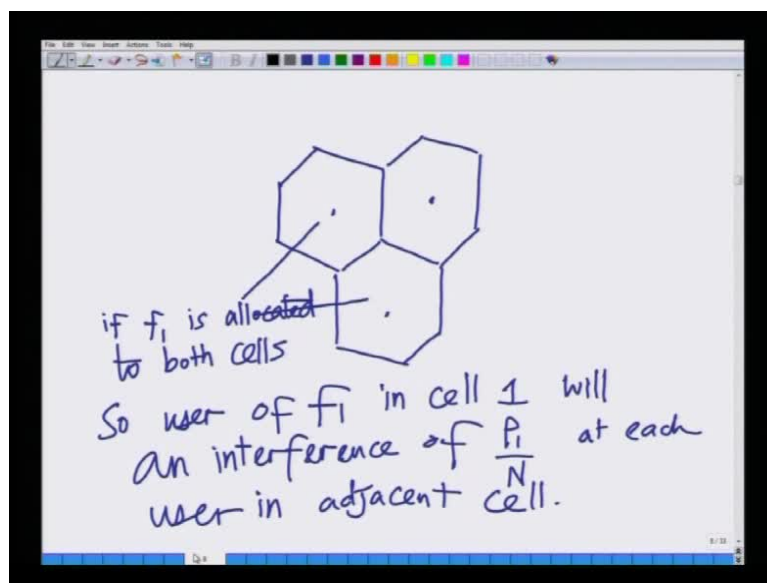 File Edit View Insert Actions Tools Help
B I
if f₁ is allocated
to both cells
So user of f₁ in cell 1 will
an interference of P₁/N at each
user in adjacent cell.